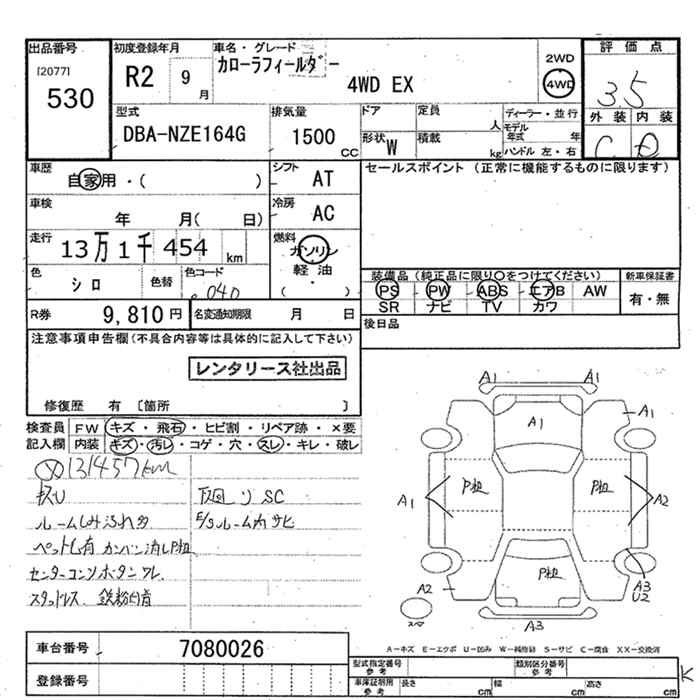 出品番号
[2077]
530
初度登録年月
R2 9月
車名・グレード
カローラフィールダー
4WD EX
2WD
4WD
評価点
3.5
外装 内装
C D
型式
DBA-NZE164G
排気量
1500 CC
ドア
定員 人
形状 W
積載 kg
ディーラー・並行
モデル年式 年
ハンドル 左・右
車歴
自家用・( )
シフト AT
車検
年 月( 日)
冷房 AC
走行
13万1千454 km
燃料
ガソリン
軽油
( ・ )
色
シロ
色替
色コード
040
R券 9,810円
名変通知期限 月 日
セールスポイント (正常に機能するものに限ります)
装備品 (純正品に限り○をつけてください)
PS PW ABS エアB AW
SR ナビ TV カワ
新車保証書
有・無
後日品
注意事項申告欄(不具合内容等は具体的に記入して下さい)
レンタリース社出品
修復歴 有 [箇所 ]
検査員記入欄
FW キズ・飛石・ヒビ割・リペア跡・×要
内装 キズ・汚レ・コゲ・穴・スレ・キレ・破レ
131457km
キズU
ルームしみ汚れ多
ペット毛有 カンバン消しP粗
センターコンソボタンワレ
スタッドレス、鉄粉付着
下廻りSC
E/Sルーム内サビ
A1 A1
A1
A1
A1
P粗
P粗
A2
P粗
A2
A3
U2
A3
A-キズ E-エクボ U-凹み W-補修跡 S-サビ C-腐食 XX-交換済
車台番号 7080026
登録番号
型式指定番号 参考
類別区分番号 参考
車庫証明用 参考
長さ cm
幅 cm
高さ cm
K